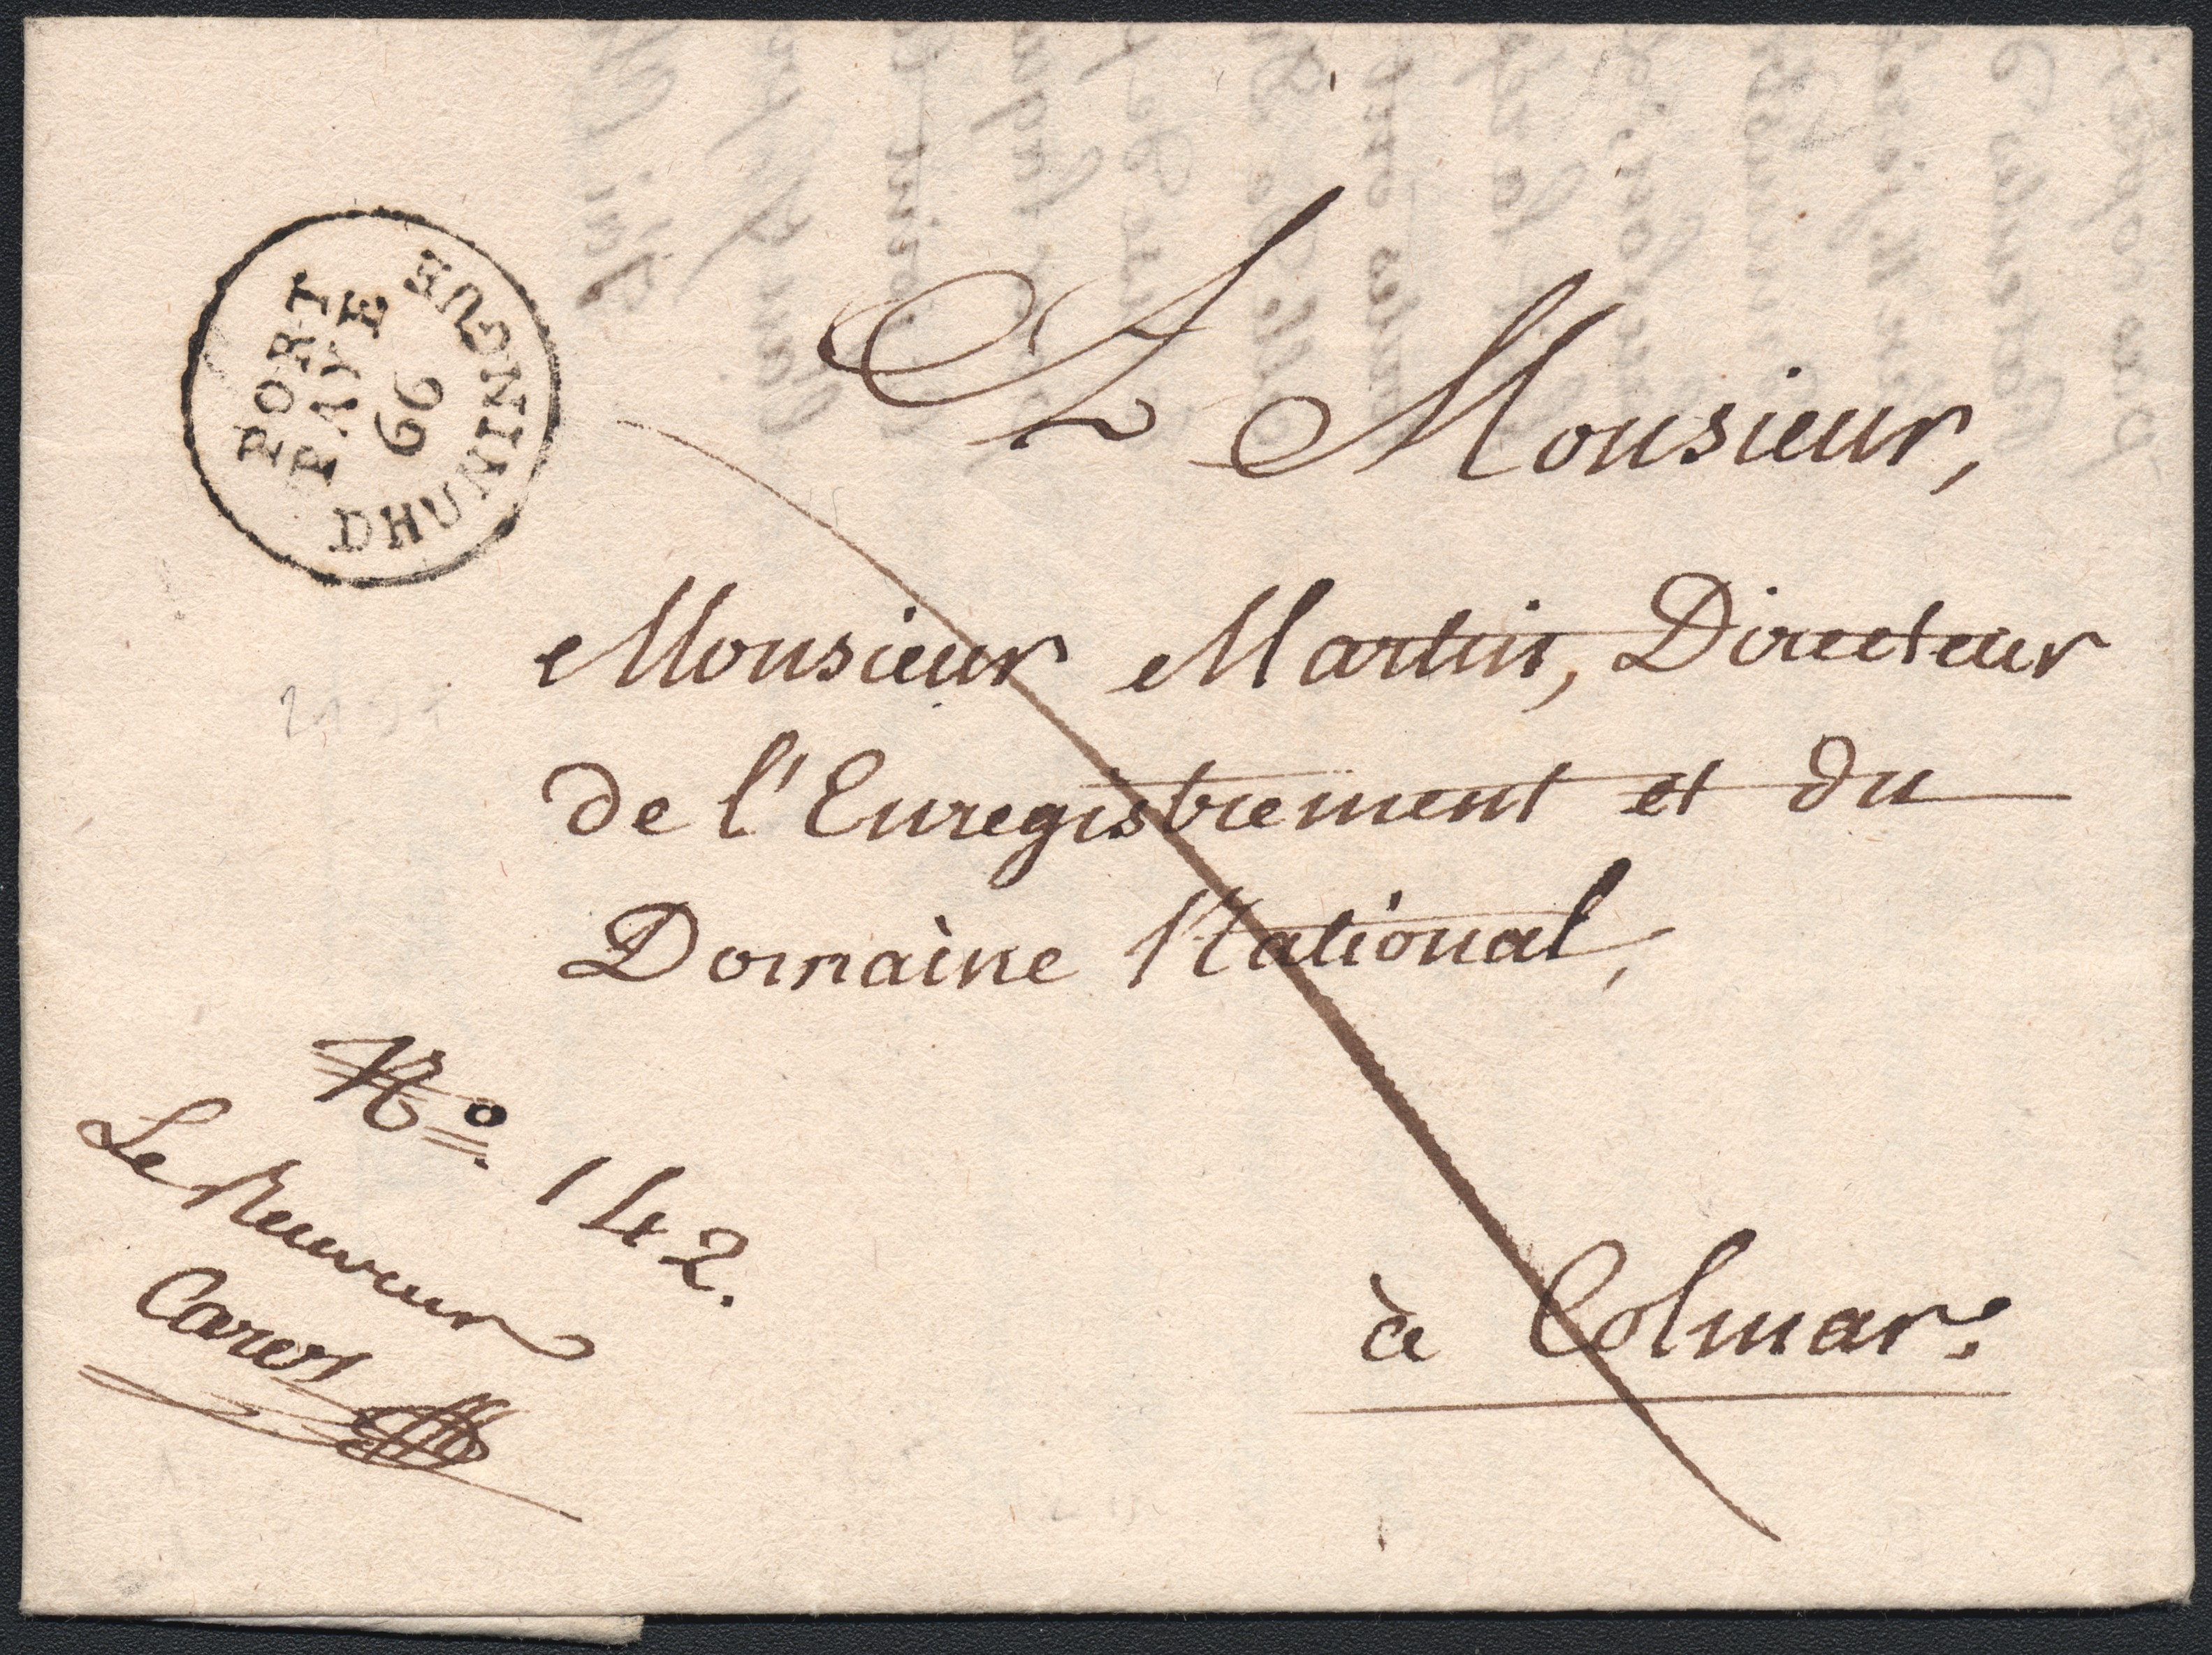 PORT
PAYE
66
DHUNINGUE
A Monsieur,
Monsieur Martin, Directeur
de l'Enregistrement et du
Domaine National,
N.º 142.
Le Receveur
à Colmar.